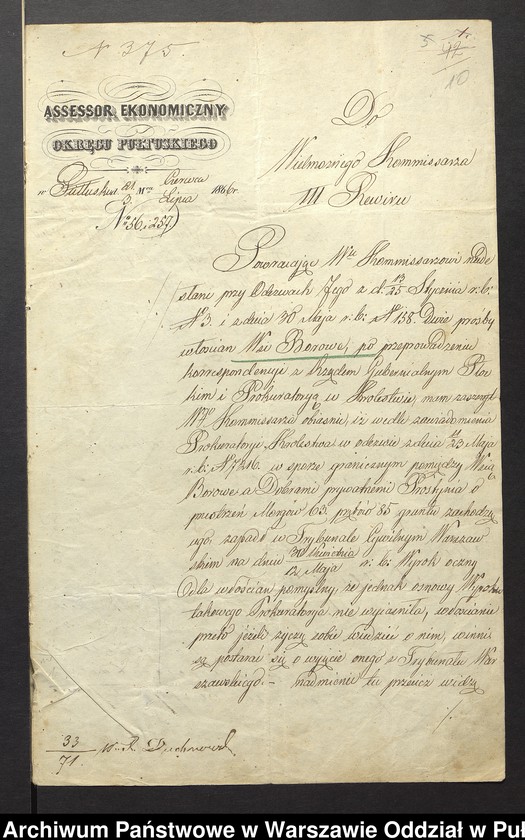 N 375.
ASSESSOR EKONOMICZNY
OKRĘGU PUŁTUSKIEGO
w Pułtusku d. 21/3 Mca Czerwca/Lipca 1866 r.
No 56 i 257
10
Do
Wielmożnego Kommissarza
III Rewiru
Powracając Wu Kommissarzowi nade
słane przy Odezwach Jego z d. 13/25 Stycznia r: b:
No 3. i z dnia 30 Maja r: b: No 158. Dwie prośby
włościan Wsi Borowe, po przeprowadzeniu
korrespondencyi z Rządem Gubernialnym Płoc
kim i Prokuratoryą w Królestwie, mam zaszczyt
Wgo Kommissarza objaśnić, iż wedle zawiadomienia
Prokuratoryi Królestwa w odezwie z dnia 11/23 Maja
r: b: No 7216. w sporze granicznym pomiędzy Wsią
Borowe a Dobrami prywatnemi Prostynia o
przestrzeń Morgów 63. prętów 85 gruntu zachodzą
cego, zapadł w Trybunale Cywilnym Warszaw
skim na dniu 30 Kwietnia/12 Maja r: b: Wyrok oczny
dla włościan pomyślny, że jednak osnowy Wyroku
takowego Prokuratorya nie wyjaśniła, włościanie
przeto jeżeli życzą sobie wiedzieć o nim, winni
są postarać się o wyjęcie onego z Trybunału War
szawskiego. – nadmienić tu przecież widzę
./.
33/71